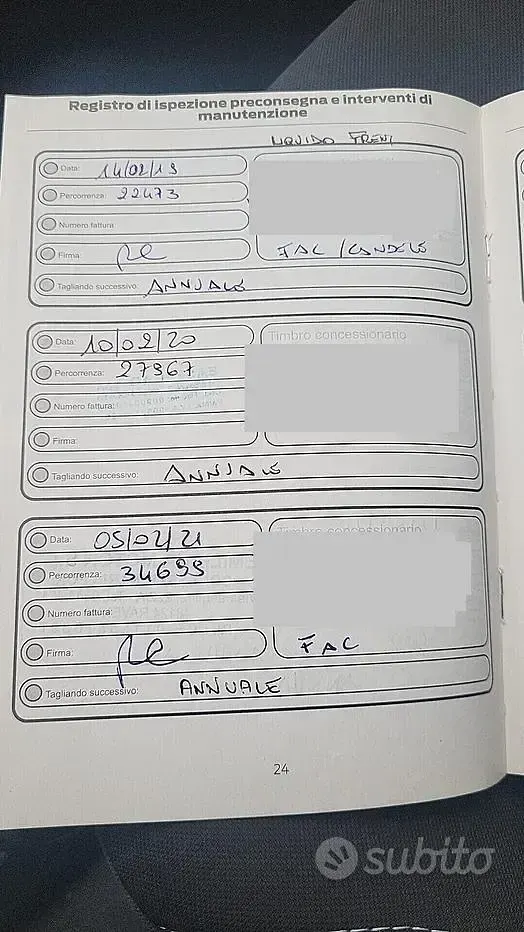 Registro di ispezione preconsegna e interventi di
manutenzione
LIQUIDO FRENI
Data: 14/02/19
Percorrenza: 22473
Numero fattura
Firma:
FAC / CANDELE
Tagliando successivo: ANNUALE
Data: 10/02/20
Timbro concessionario
Percorrenza: 27967
Numero fattura:
Firma:
Tagliando successivo: ANNUALE
Data: 05/02/21
Timbro concessionario
Percorrenza: 34699
Numero fattura:
Firma:
FAC
Tagliando successivo: ANNUALE
24
subito